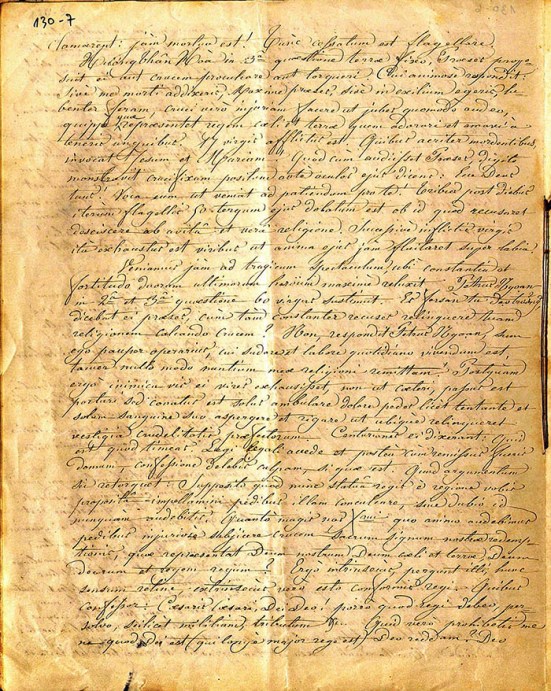 130-7
clamarent: jam mortuus est! Tunc cessatum est flagellare.
in 3a quæstione terræ fixo, præses propo-
suit ei aut crucem proculcare aut torqueri. Qui animose respondit:
sive me morti addixerit, Maxime præses, sive in exilium egeris, li-
benter feram, cruci vero injuriam facere ut jubes quomodo audeo,
quippe quæ repræsentet regem cœli et terræ quem adorari et amari a
teneris unguibus. virgis afflictus est. Quibus acriter mordentibus,
invocat Jesum et Mariam. Quod cum audisset Præses, digito
monstravit crucifixum positum ante oculos ejus dicens: Eu Deus
tuus! Voca eum ut veniat ad patiendum pro te. Tribus post diebus
iterum flagellis tergum ejus dolatum est ob id quod recusaret
desciscere ab avita et vera religione. Sueque inflictis virgis
ita exhaustus est viribus ut anima ejus jam fluitaret super labia.
Veniamus jam ad tragicum spectaculum, ubi constantia et
fortitudo duorum ultimorum maxime reluxit. Petrus
in 2a et 3a quæstione 60 virgas sustinuit. Et forsan tu
dicebat ei præses, cum tam constanter recuses relinquere tuam
religionem calcando crucem? Non, respondit Petrus, sum
ego pauper operarius, cui sudore et labore quotidiano vivendum est,
tamen nullo modo nuntium meæ religioni remittam. Postquam
ergo inimica vis ei vires exhausisset, non ut cæteri, passus est
portari sed conatus est solus ambulare dolore pedes licet tentante et
solum sanguine suo aspergere et rigare ut ubique relinqueret
vestigia crudelitatis præfectorum. Centurionis ei dixerunt: Quid
est quod timeas. Legi regali accede et postea cum remissus fueris
domum, confessione delebis culpam, si qua est. Quid argumentum
si retorqueo: Supposito quod nunc statua regis a regione vobis
proposita impellemini pedibus illam conculcare, sine dubio id
nunquam audebitis. Quanto magis nos Xtiani, quo animo audebimus
pedibus injuriose subjicere crucem Sacrum signum nostræ redemp-
tionis, quæ repræsentat Deum nostrum Deum cœli et terræ, Deum
deorum et regem regum? Ergo intrinsecus, pergunt illi, hunc
sensum retine, extrinsecus vero esto conformis regi. Quibus
confessor: Cæsaris Cæsari, Dei Deo! porro quod regi debeo, per-
solvo, scilicet militiam, tributum &c. Quid vero prohibetis me
ne quod Dei est (qui longe major rege est) Deo reddam? Deo